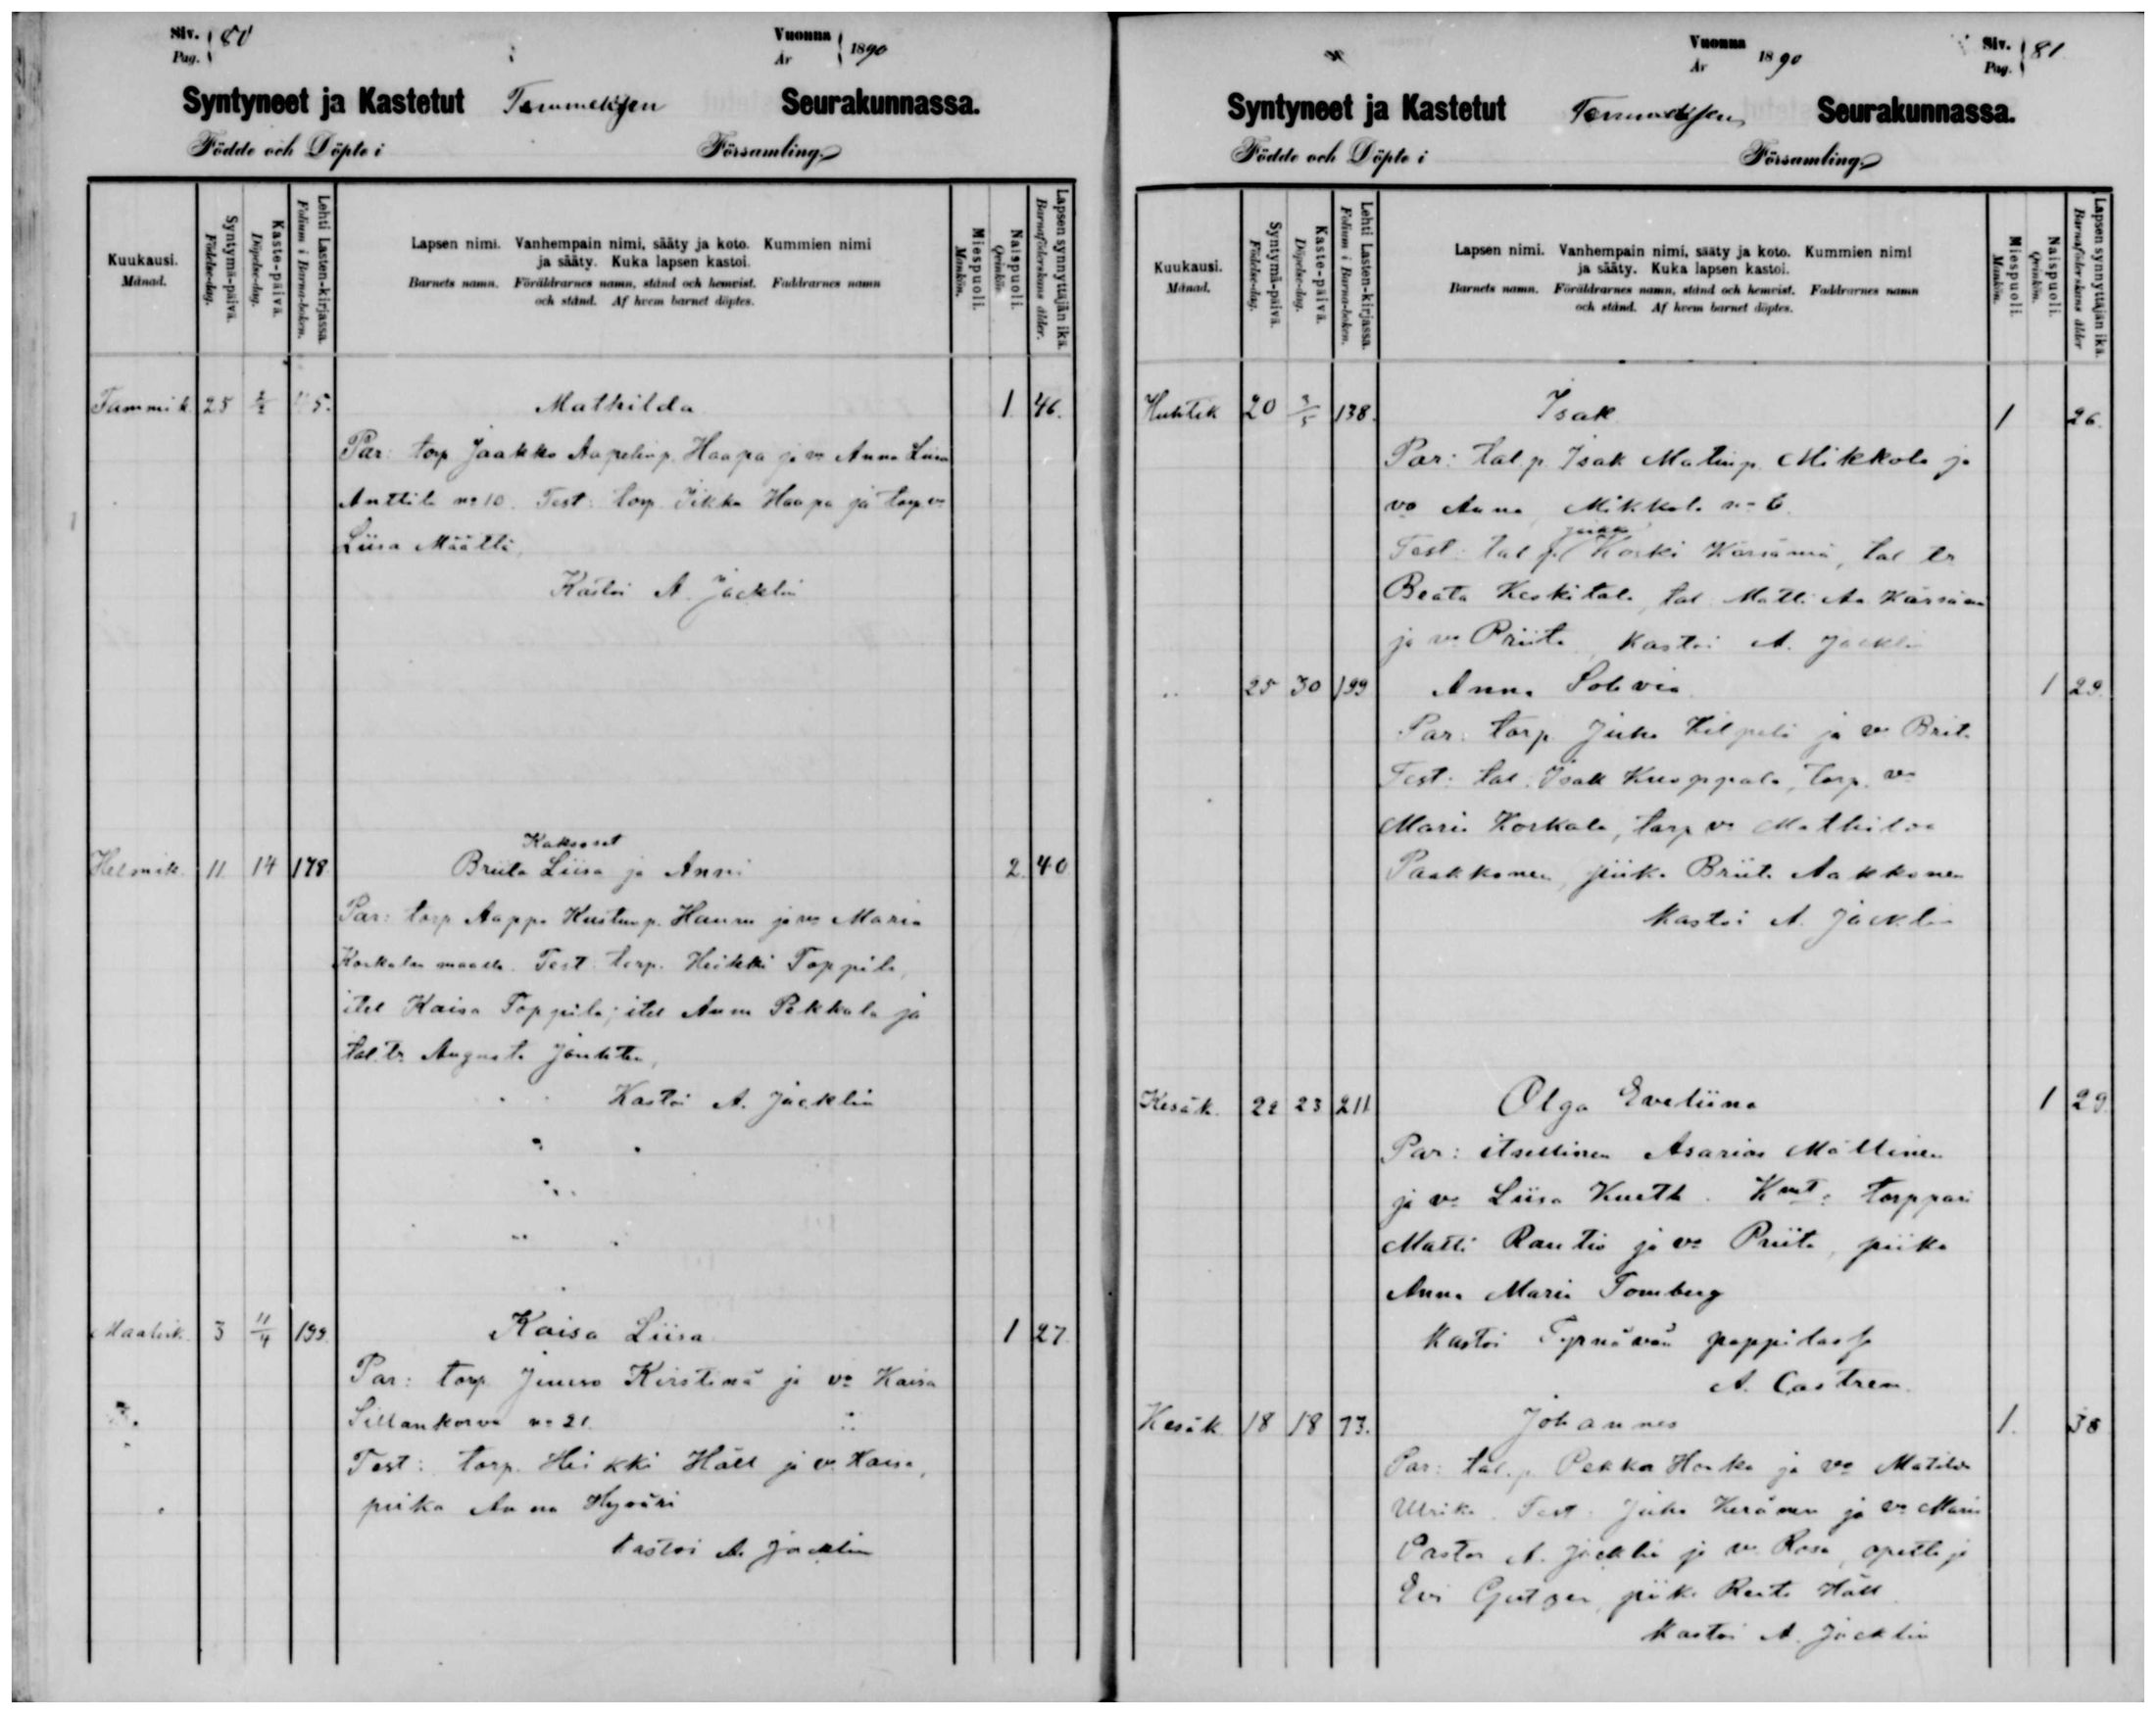 Siv. Pag. 80
Vuonna År 1890
Syntyneet ja Kastetut Temmeksen Seurakunnassa.
Födde och Döpte i Församling.
Kuukausi. Månad.
Syntymä-päivä. Födelse-dag.
Kaste-päivä. Döpelse-dag.
Lehti Lasten-kirjassa. Folium i Barna-boken.
Lapsen nimi. Vanhempain nimi, sääty ja koto. Kummien nimi
ja sääty. Kuka lapsen kastoi.
Barnets namn. Föräldrarnes namn, stånd och hemvist. Faddrarnes namn
och stånd. Af hvem barnet döptes.
Miespuoli. Mankön.
Naispuoli. Qvinkön.
Lapsen synnyttäjän ikä. Barnaföderskans ålder.
Tammik. 25 2/2 5. Mathilda 1. 46.
Par: torp Jaakko Aapelinp. Haapa ja vo Anna Liisa
Anttila no 10. Test: torp. Iikka Haapa ja torp vo
Liisa Määttä
Kastoi A. Jacklin
Kaksoset
Helmik. 11. 14 178 Briita Liisa ja Anni 2. 40
Par: torp Aappo Kustinp. Hannu ja vo Maria
Korkalan maalla. Test: torp. Heikki Toppila,
itel Kaisa Toppila, itel Anna Pekkala ja
tal. tr Augusta Jouhten,
Kastoi A. Jacklin
Maalisk. 3 11/4 199. Kaisa Liisa 1 27.
Par: torp Kirstinä ja vo Kaisa
Sillankorva no 21.
Test: torp. Heikki Häll ja vo Kaisa,
piika Anna Hyväri
Kastoi A. Jacklin
Vuonna År 1890
Siv. Pag. 81
Syntyneet ja Kastetut Temmeksen Seurakunnassa.
Födde och Döpte i Församling.
Kuukausi. Månad.
Syntymä-päivä. Födelse-dag.
Kaste-päivä. Döpelse-dag.
Lehti Lasten-kirjassa. Folium i Barna-boken.
Lapsen nimi. Vanhempain nimi, sääty ja koto. Kummien nimi
ja sääty. Kuka lapsen kastoi.
Barnets namn. Föräldrarnes namn, stånd och hemvist. Faddrarnes namn
och stånd. Af hvem barnet döptes.
Miespuoli. Mankön.
Naispuoli. Qvinkön.
Lapsen synnyttäjän ikä. Barnaföderskans ålder
Huhtik 20 3/5 138. Isak 1 26.
Par: tal. p. Isak Matinp. Mikkola ja
vo Anna Mikkola no 6.
Test: tal p. Koski Kärsämä, tal tr
Beata Keskitalo, tal. Matti Aa. Kärsämä
ja vo Priita, Kastoi A. Jacklin
" 25 30 199 Anna Sohvia 1 29.
Par: torp. Juho Kilpeli ja vo Brita
Test: tal. Isak Kuoppala, torp. vo
Maria Korkala, torp vo Mathilda
Paakkonen, piika Briita Aakkonen
Kastoi A. Jacklin
Kesäk. 22 23 211 Olga Eveliina 1 29.
Par: itsellinen Asarias Mällinen
ja vo Liisa Kustt. Kmt: torppari
Matti Rautio ja vo Priita, piika
Anna Maria Tomberg
Kastoi Tyrnävän pappilassa
A. Castren.
Kesäk. 18 18 73. Johannes 1. 38
Par: tal. p. Pekka Honka ja vo Matilda
Ulrika. Test: Juho Keränen ja vo Maria
Pastor A. Jacklin ja vo Rosa, opettaja
piika Reeta Häll
Kastoi A. Jacklin